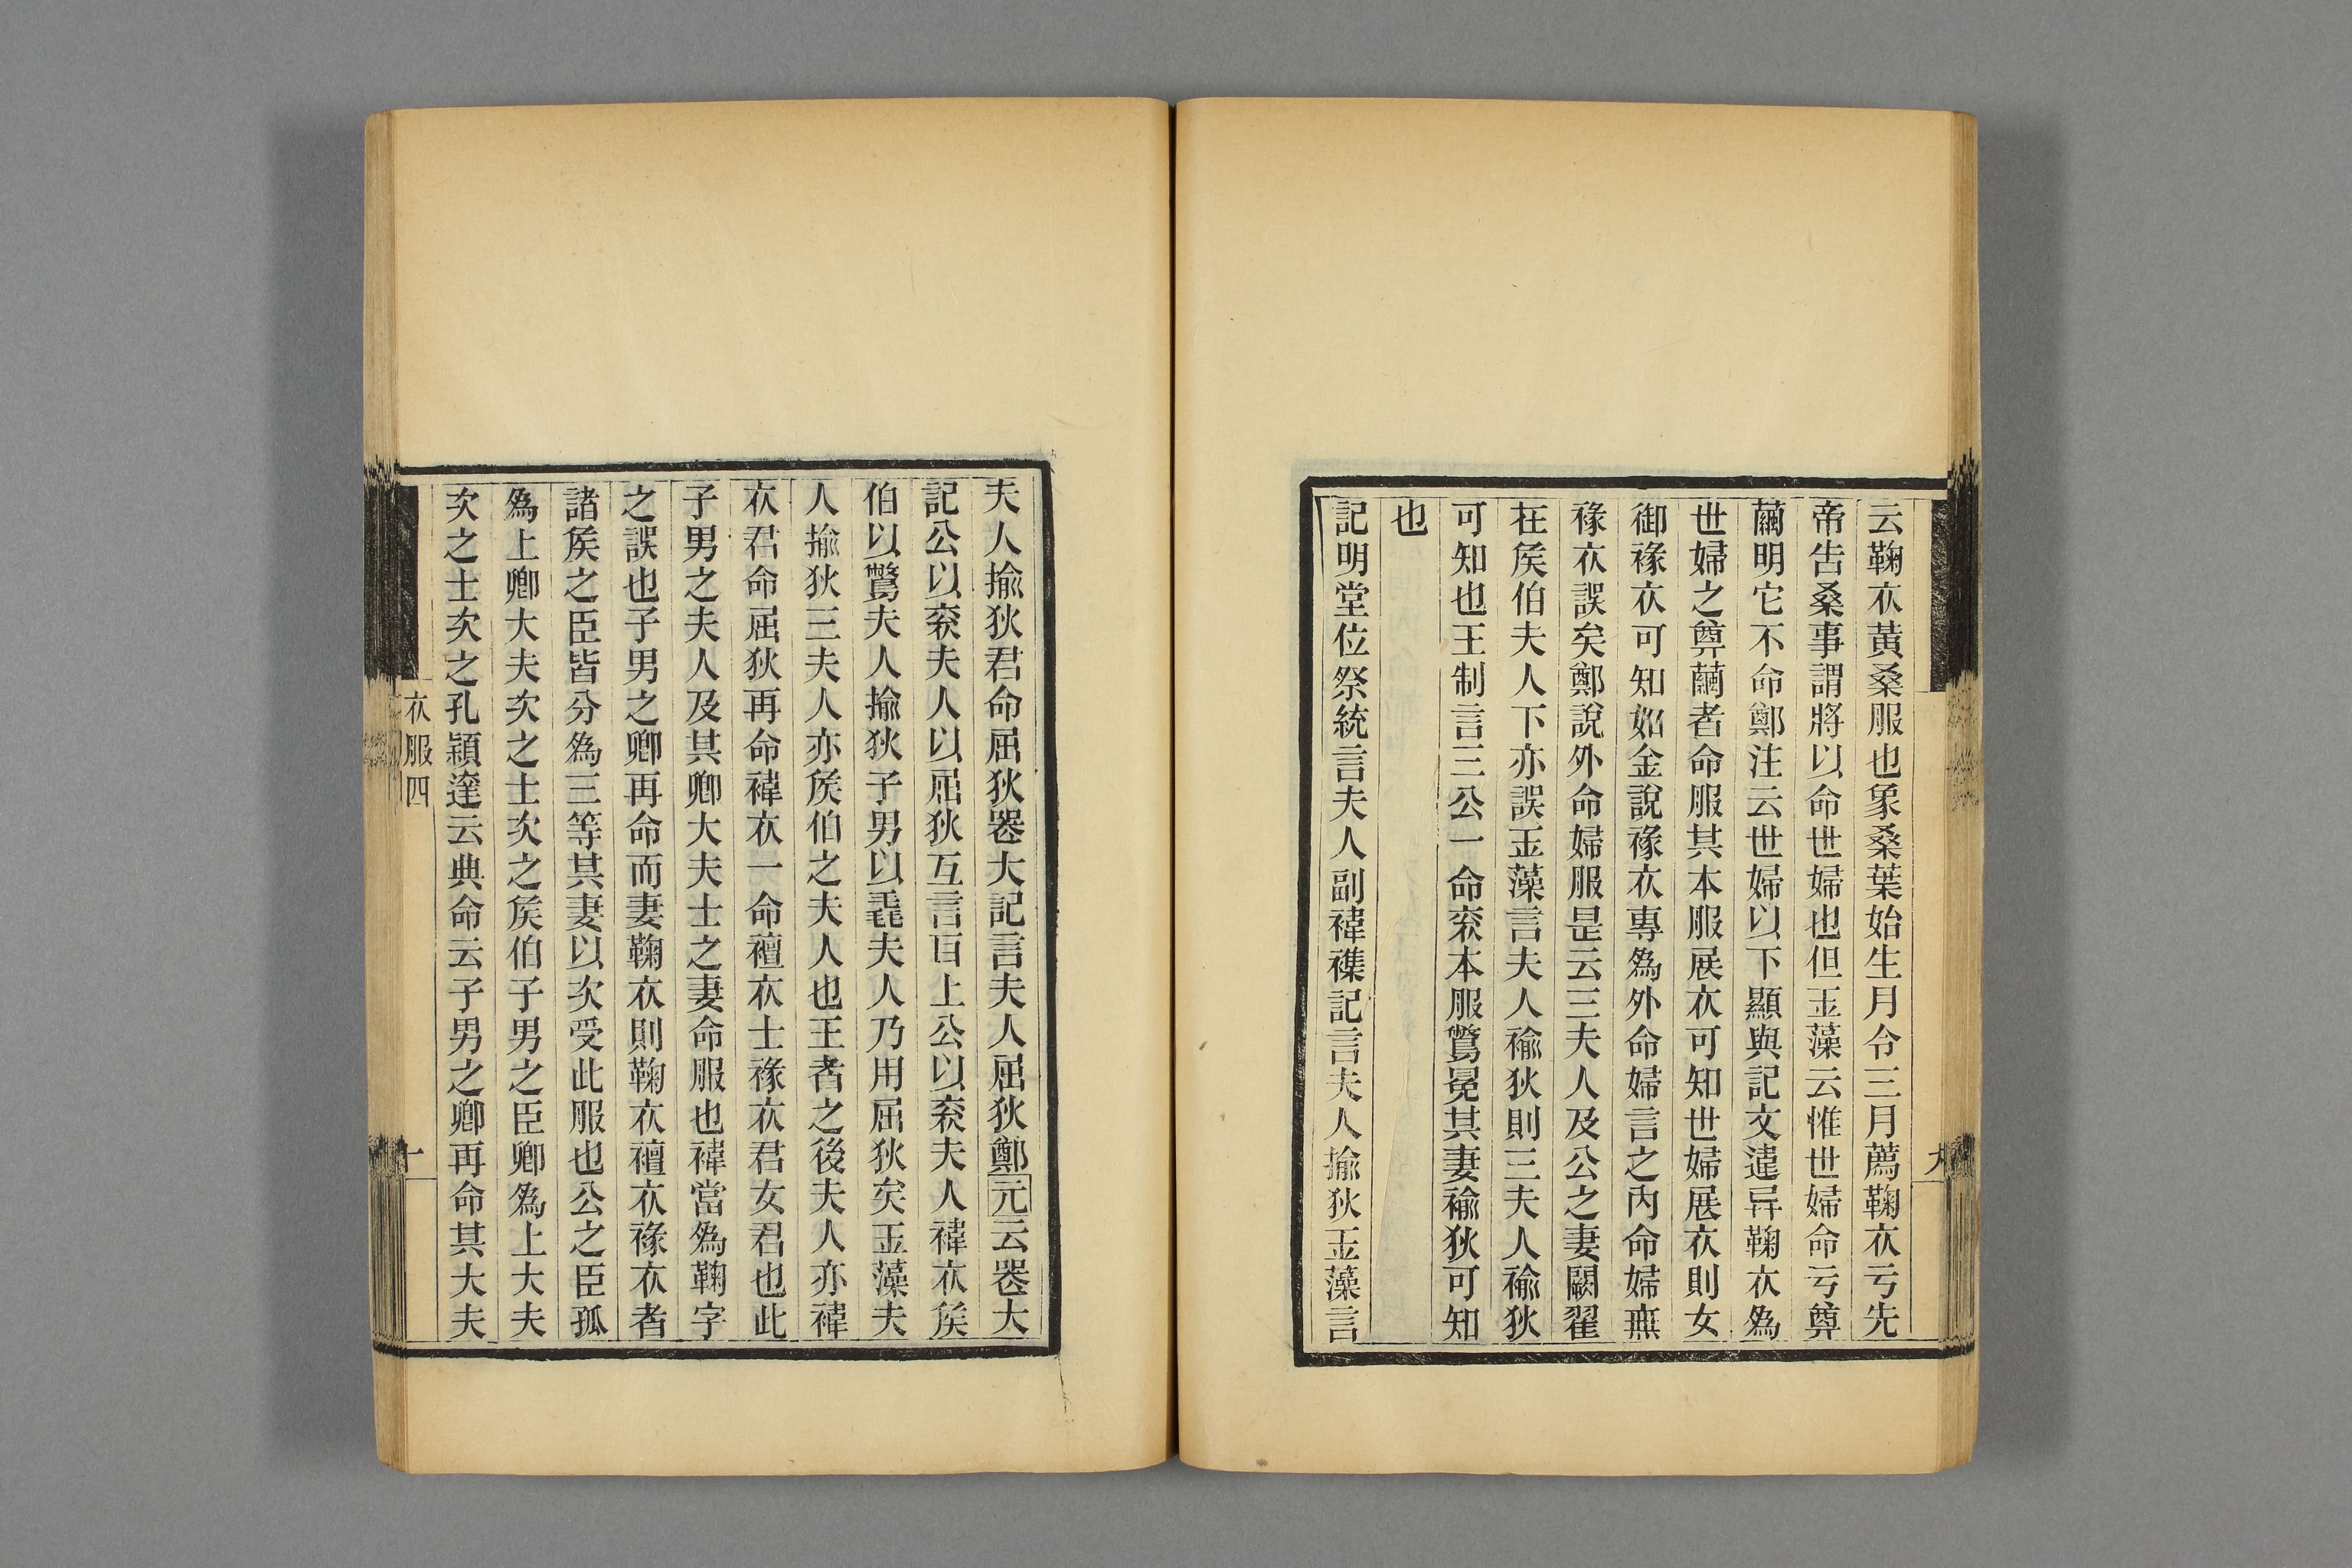 云鞠衣黃桑服也象桑葉始生月令三月薦鞠衣亏先
帝告桑事謂將以命世婦也但玉藻云惟世婦命亏尊
繭明它不命鄭注云世婦以下顯與記文違异鞠衣爲
世婦之尊繭者命服其本服展衣可知世婦展衣則女
御褖衣可知如金說褖衣專爲外命婦言之內命婦無
褖衣誤矣鄭說外命婦服是云三夫人及公之妻闕翟
在矦伯夫人下亦誤玉藻言夫人褕狄則三夫人褕狄
可知也王制言三公一命袞本服鷩冕其妻褕狄可知
也
記明堂位祭統言夫人副褘襍記言夫人揄狄玉藻言
夫人揄狄君命屈狄器大記言夫人屈狄鄭元云器大
記公以袞夫人以屈狄互言目上公以袞夫人褘衣矦
伯以鷩夫人揄狄子男以毳夫人乃用屈狄矣玉藻夫
人揄狄三夫人亦矦伯之夫人也王者之後夫人亦褘
衣君命屈狄再命褘衣一命襢衣士褖衣君女君也此
子男之夫人及其卿大夫士之妻命服也褘當爲鞠字
之誤也子男之卿再命而妻鞠衣則鞠衣襢衣褖衣者
諸矦之臣皆分爲三等其妻以次受此服也公之臣孤
爲上卿大夫次之士次之矦伯子男之臣卿爲上大夫
次之士次之孔穎達云典命云子男之卿再命其大夫
衣服四
十